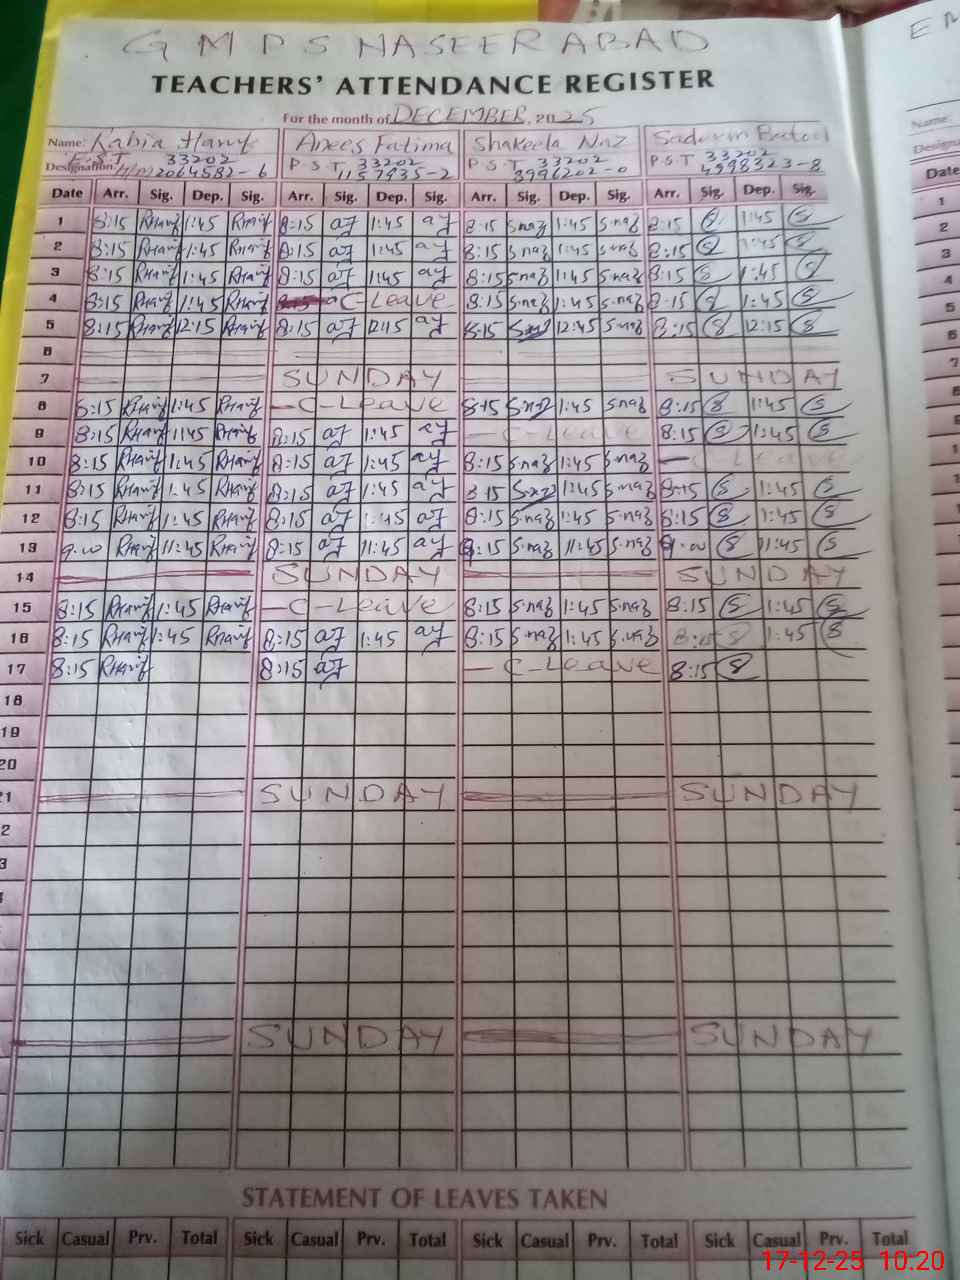 G M P S NASEERABAD
TEACHERS' ATTENDANCE REGISTER
For the month of DECEMBER, 2025
Name: Rabia Hanif Anees Fatima Shakeela Naz Sadurm Batool
Designation: E.S.T 33202 2064582-6 P.S.T 33202 1157935-2 P.S.T 33202 3996202-0 P.S.T 33202 4998323-8
Date Arr. Sig. Dep. Sig. Arr. Sig. Dep. Sig. Arr. Sig. Dep. Sig. Arr. Sig. Dep. Sig.
1 8:15 RHanif 1:45 RHanif 8:15 af 1:45 af 8:15 S.naz 1:45 S.naz 8:15 S 1:45 S
2 8:15 RHanif 1:45 RHanif 8:15 af 1:45 af 8:15 S.naz 1:45 S.naz 8:15 S 1:45 S
3 8:15 RHanif 1:45 RHanif 8:15 af 1:45 af 8:15 S.naz 1:45 S.naz 8:15 S 1:45 S
4 8:15 RHanif 1:45 RHanif C-Leave 8:15 S.naz 1:45 S.naz 8:15 S 1:45 S
5 8:15 RHanif 12:15 RHanif 8:15 af 12:15 af 8:15 S.naz 12:45 S.naz 8:15 S 12:15 S
6
7 SUNDAY SUNDAY
8 8:15 RHanif 1:45 RHanif -C-Leave 8:15 S.naz 1:45 S.naz 8:15 S 1:45 S
9 8:15 RHanif 1:45 RHanif 8:15 af 1:45 af -C-Leave 8:15 S 1:45 S
10 8:15 RHanif 1:45 RHanif 8:15 af 1:45 af 8:15 S.naz 1:45 S.naz - C-Leave
11 8:15 RHanif 1:45 RHanif 8:15 af 1:45 af 8:15 S.naz 1:45 S.naz 8:15 S 1:45 S
12 8:15 RHanif 1:45 RHanif 8:15 af 1:45 af 8:15 S.naz 1:45 S.naz 8:15 S 1:45 S
13 9:00 RHanif 11:45 RHanif 8:15 af 11:45 af 8:15 S.naz 11:45 S.naz 9:00 S 11:45 S
14 SUNDAY SUNDAY
15 8:15 RHanif 1:45 RHanif -C-Leave 8:15 S.naz 1:45 S.naz 8:15 S 1:45 S
16 8:15 RHanif 1:45 RHanif 8:15 af 1:45 af 8:15 S.naz 1:45 S.naz 8:15 S 1:45 S
17 8:15 RHanif 8:15 af - C-Leave 8:15 S
18
19
20
21 SUNDAY SUNDAY
2
3
SUNDAY SUNDAY
STATEMENT OF LEAVES TAKEN
Sick Casual Prv. Total Sick Casual Prv. Total Sick Casual Prv. Total Sick Casual Prv. Total
17-12-25 10:20
Name:
Date
1
2
3
4
5
6
7